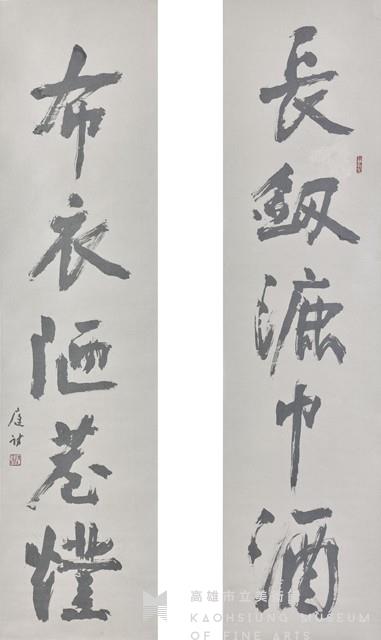 長釼漉巾酒
布衣陋巷燈
庭詩
高雄市立美術館
KAOHSIUNG MUSEUM
OF FINE ARTS